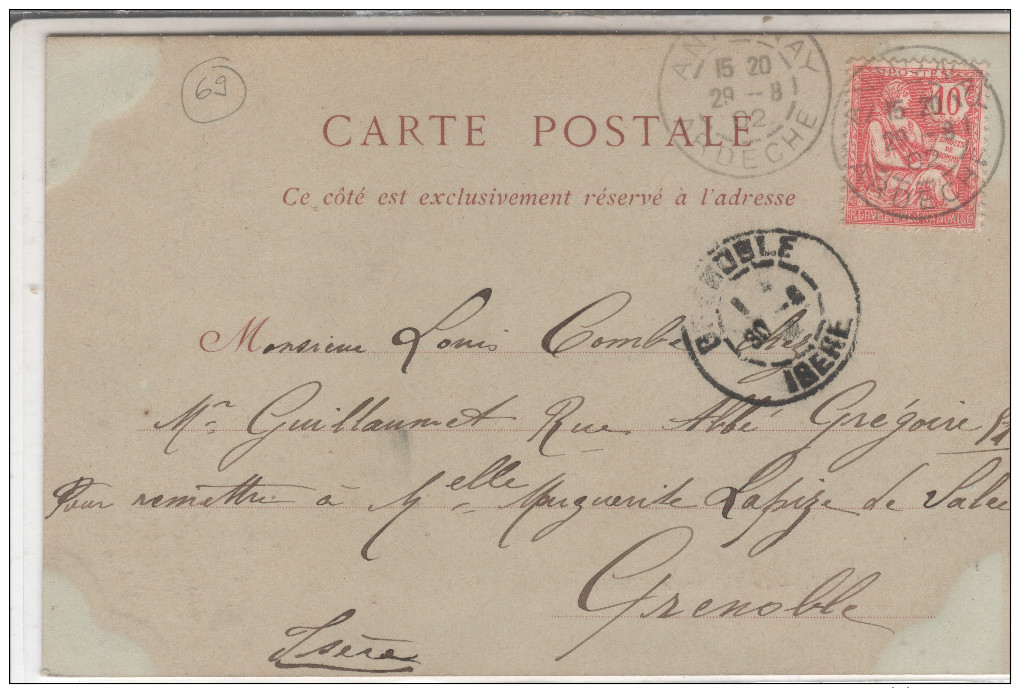 69
ANNONAY
15 20
29 - 8
02
ARDECHE
POSTES
10
DROITS DE L'HOMME
REPUBLIQUE FRANÇAISE
CARTE POSTALE
Ce côté est exclusivement réservé à l'adresse
GRENOBLE
30 - 8
ISERE
Monsieur Louis Combe chez
Mr Guillaumet Rue Abbé Grégoire
Pour remettre à Melle Marguerite Lapize de Salée
Grenoble
Isère